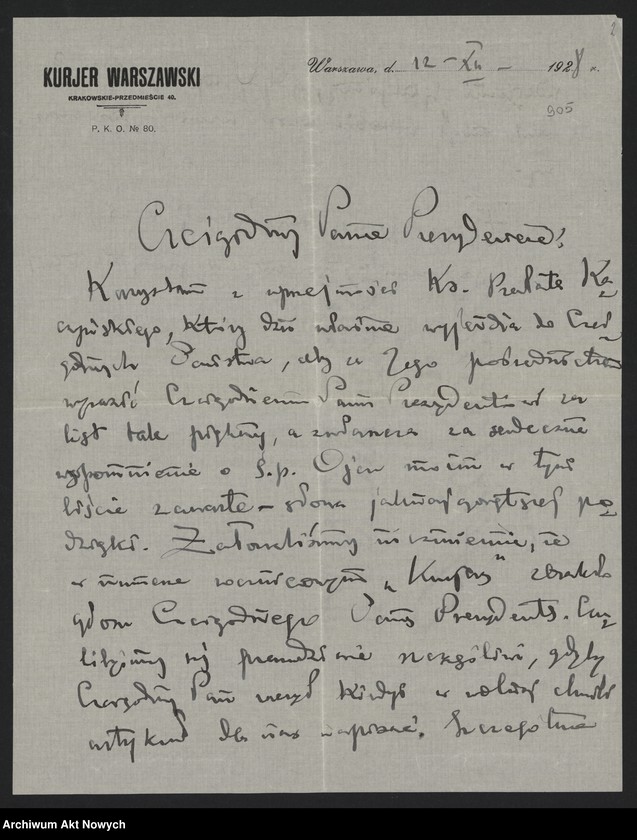 KURJER WARSZAWSKI
KRAKOWSKIE-PRZEDMIEŚCIE 40.
P. K. O. № 80.
Warszawa, d. 12 - XII - 1928 r.
905
Czcigodny Panie Prezydencie!
Korzystam z uprzejmości Ks. Prałata Ka-
czyńskiego, który dziś właśnie wyjeżdża do Czci-
godnych Państwa, aby za Jego pośrednictwem
wyrazić Czcigodnemu Panu Prezydentowi za
list tak piękny, a zwłaszcza za serdeczne
wspomnienie o ś.p. Ojcu moim w tym
liście zawarte - słowa jaknajgorętszej po-
dzięki. Żałowaliśmy niezmiernie, że
w numerze rocznicowym „Kurjera" zbrakło
głosu Czcigodnego Pana Prezydenta. Czu-
libyśmy się prawdziwie szczęśliwi, gdyby
Czcigodny Pan zechciał kiedyś w wolnej chwili
artykuł dla nas napisać. Szczególnie
Archiwum Akt Nowych